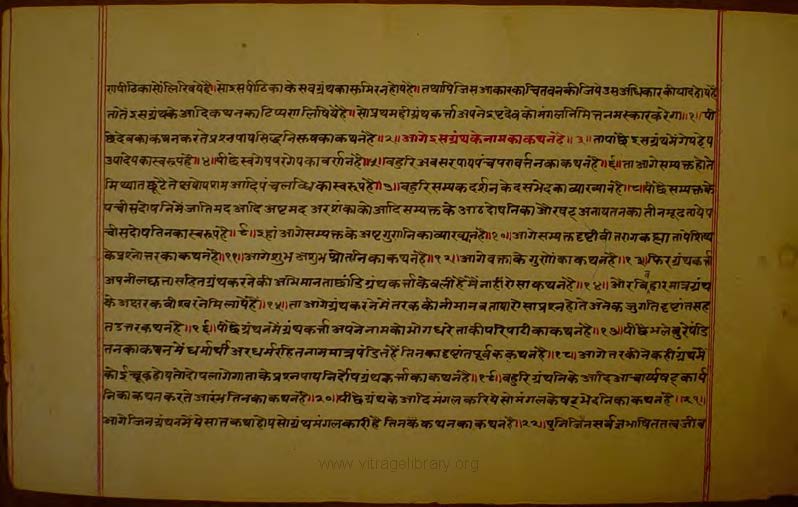 रापीठिकासोंलिखियेहै॥सोइसपीठिकाके सवग्रंथकासमिरनहोयहै॥तथापिजिसआकारकाचिंतवनकीजियेउसअधिकारकीयादहोयहै
तातेंइसग्रंथके आदिकथनकाटिप्पणलिषियेंहै॥सोप्रथमहीग्रंथकर्त्ताअपनेंइष्टदेवकोमंगलनिमित्तनमस्कारकरेगा॥१॥पी
छैदेवकाकथनकरतेप्रश्नपायसिद्धनिरूपकाकथनहै॥२॥आगेंइसग्रंथकेनामकाकथनहै॥३॥तापीछैइसग्रंथमेंगेयहेय
उपादेयकास्वरूपहै॥४॥पीछैस्वगेयपरगेयकावर्णनहै॥५॥वहुरिअवसरपायपंचपरावर्त्तनकाकथनहै॥६॥ता आगेसम्यक्तहोते
मिथ्यातछूटेतेंषयोपशमआदिपंचलब्धिकास्वरूपहै॥७॥वहुरिसम्यकदर्शनकेदसभेदकाव्याख्यानहै॥८॥पीछैसम्यक्तके
पचीसदोषनिमेंजातिमदआदिअष्टमद अरशंकाकोंआदिसम्यक्तकेआठदोषनिकाऔरषट्अनायतनकातीनमूढतायेप
चीसदोषतिनकास्वरूपहै॥९॥इहांआगेसम्यक्तकेअष्टगुणनिकाव्याख्यनहै॥१०॥आगेसम्यक्तदृष्टीवीतरागकह्यातापेशिष्य
केप्रश्नोत्तरकाकथनहै॥११॥आगेशुभअशुभश्रोतानिकाकथनहै॥१२॥आगेवक्ताकेगुणोंकाकथनहै॥१३॥फिरग्रंथकर्त्ता
अपनीलघुतासहितग्रंथकरनेकीअभिमानताछांडिग्रंथकर्त्ताकेवलीहैंमैंनाहींऐसाकथनहै॥१४॥औरविहारमात्रग्रंथ
केअक्षरकवीश्वरनेंमिलायेहै॥१५॥ताआगेग्रंथकरनेंमेंतरककीनीमानवतायाऐसाप्रश्नहोतेअनेकजुगतिदृष्टांतसह
तउत्तरकथनहै॥१६॥पीछैग्रंथनमेंग्रंथकर्त्ताअपनेनामकोभोगधरेताकीपरिपाटीकाकथनहै॥१७॥पीछैभलेबुरेपंडि
तनकाकथनमेंधर्मार्थीअरधर्मरहितनाममात्रपंडितहैंतिनकादृष्टांतपूर्वककथनहै॥१८॥आगेतरकीनेकहीग्रंथमें
कोईचूकहोयतोदोषलागेगाताकेप्रश्नपायनिर्दोषग्रंथकर्त्ताकाकथनहै॥१९॥वहुरिग्रंथनिकेआदिआचार्यषट्कार्य
निकाकथनकरतेआरंभतिनकाकथनहै॥२०॥पीछैग्रंथकेआदिमंगलकरियेसोमंगलकेषट्भेदनिकाकथनहै॥२१॥
आगेजिनग्रंथनमेंयेसातकथाहोयसोग्रंथमंगलकारीहैतिनकेकथनकाकथनहै॥२२॥पुनिजिनसर्वज्ञभाषिततत्वजीव
www.vitragelibrary.org